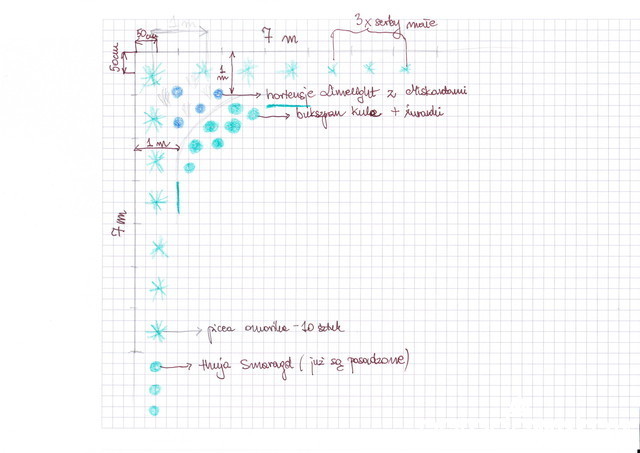 1 m
50cm
7 m
3x serby małe
50cm
1 m
hortensje Limelight z miskantami
bukszpan kule + żurawki
1 m
7 m
picea omorika - 10 sztuk
thuja Smaragd (już są posadzone)